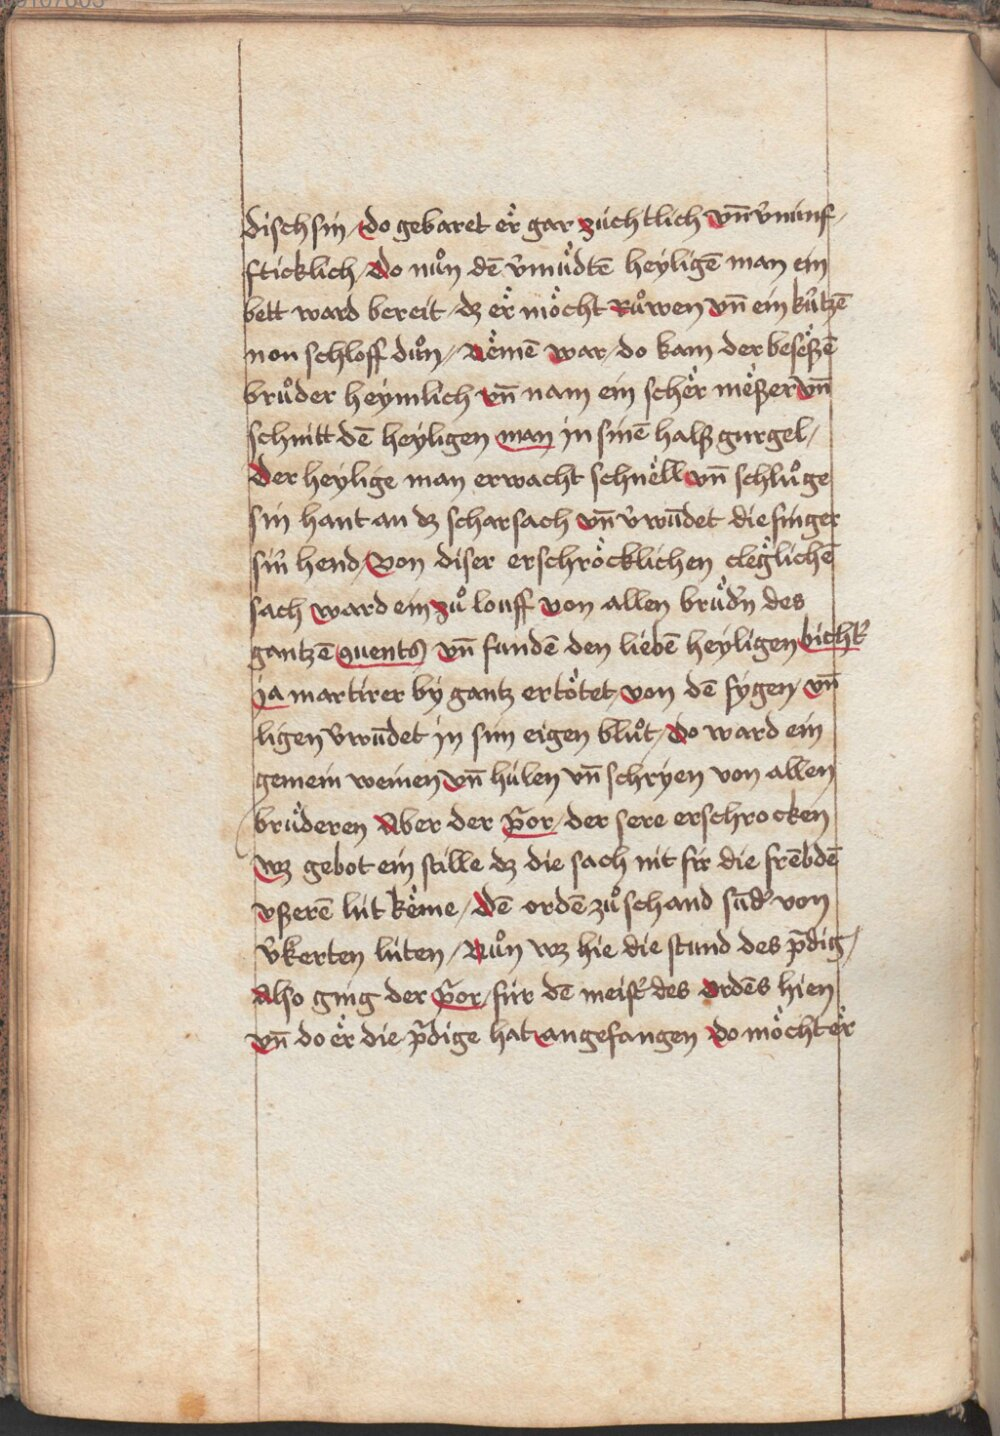 disch sin / do gebaret er̈ gar zúchtlich vn̄ v̓núnf /
fticklich / Do nuͦn dē v̓muͤdtē heyligē man ein
bett ward bereit / dz er̈ moͤcht Ruͦwen vn̄ ein kúrtzē
non schloff duͦn / Nëmē war / do kam der besëßē
bruͦder heymlich vn̄ nam ein schër mëßer vn̄
schnitt dē heyligen man jn sinē halß gurgel /
Der heylige man erwacht schnëll vn̄ schluͦge
sin hant an dz scharsach vn̄ v̓wūdet die finger
sin̓ hend / Von diser erschroͤcklichen cleglichē
sach ward ein zuͦ louff von allen bruͤd̓n des
gantzē 9uents vn̄ fundē den liebē heyligen bicht̓
ja martirer by gantz ertoͤtet / von dē sygen / vn̄
ligen v̓wūdet jn sim eigen bluͦt / do ward ein
gemein weinen vn̄ húlen vn̄ schryen von allen
bruͤderen Aber der p̄or / der sere erschrocken
wz gebot ein stille dz die sach nit fir die frēbdē
vßerē lút këme / dē ordē zuͦ schand sūd̓ von
v̓kerten lúten / Nuͦn wz hie die stund des p̄dig /
Also ging der p̄or / fúr dē meist̓ des ordēs hien
vn̄ do ër die p̄dige hat angefangen do moͤcht ër